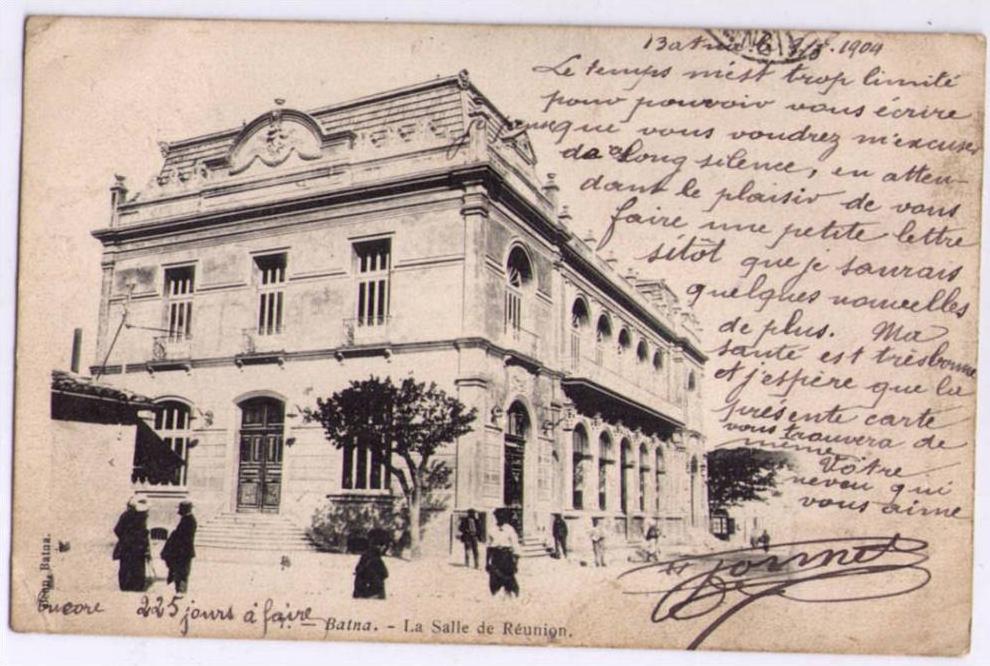 Batna le 9/8. 1904
Le temps m'est trop limité
pour pouvoir vous écrire
que vous voudrez m'excuser
de long silence, en atten-
dant le plaisir de vous
faire une petite lettre
sitôt que je saurais
quelques nouvelles
de plus. Ma
santé est très bonne
et j'espère que la
présente carte
vous trouvera de
même
Vôtre
neveu qui
vous aime
Batna.
encore 225 jours à faire
Batna. - La Salle de Réunion.